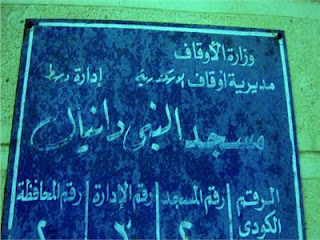 وزارة الأوقاف
مديرية أوقاف الإسكندرية إدارة وسط
مسجد النبى دانيال
الرقم الكودى رقم المسجد رقم الإدارة رقم المحافظة
٢ ٢ ٢